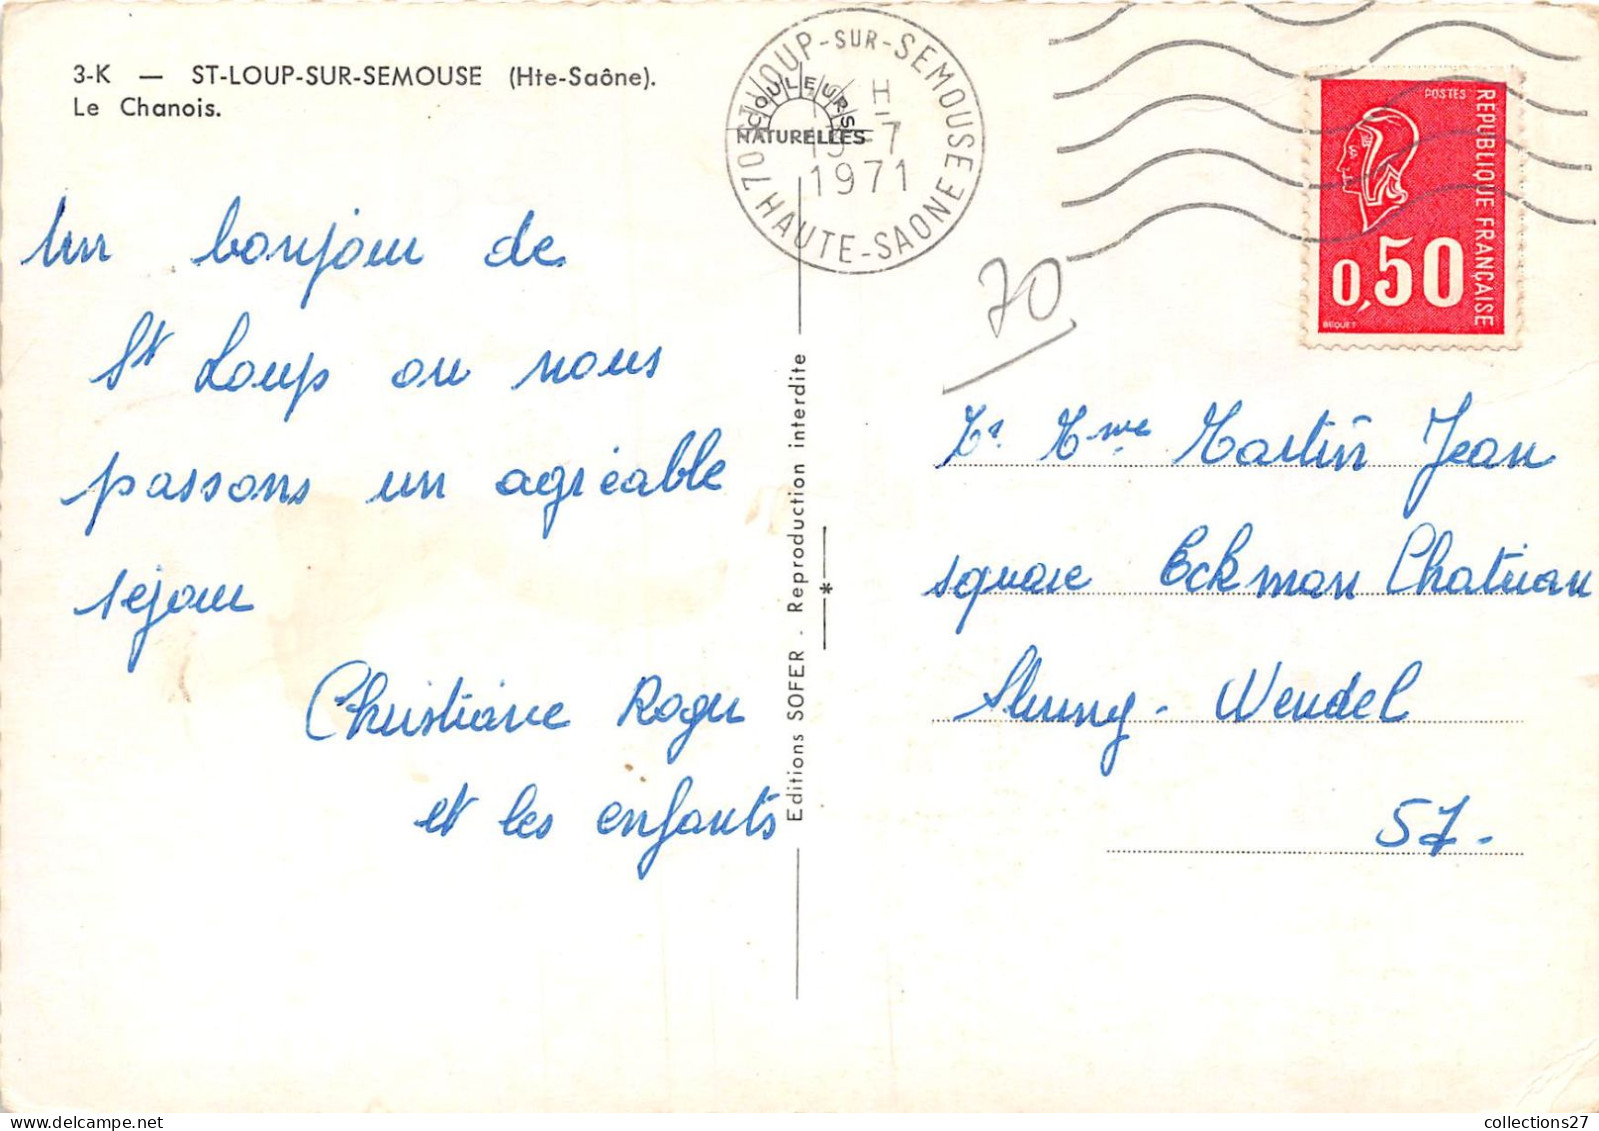 3-K — ST-LOUP-SUR-SEMOUSE (Hte-Saône).
Le Chanois.
COULEURS
NATURELLES
70 ST LOUP-SUR-SEMOUSE
H
15-7
1971
HAUTE-SAONE
POSTES
REPUBLIQUE FRANÇAISE
0,50
BEQUET
70
Un bonjour de
St Loup ou nous
passons un agréable
séjour
Christiane Roger
et les enfants
Editions SOFER - Reproduction interdite
Mr Mme Martin Jean
square Eckman Chatrian
Stiring-Wendel
57-
collections27